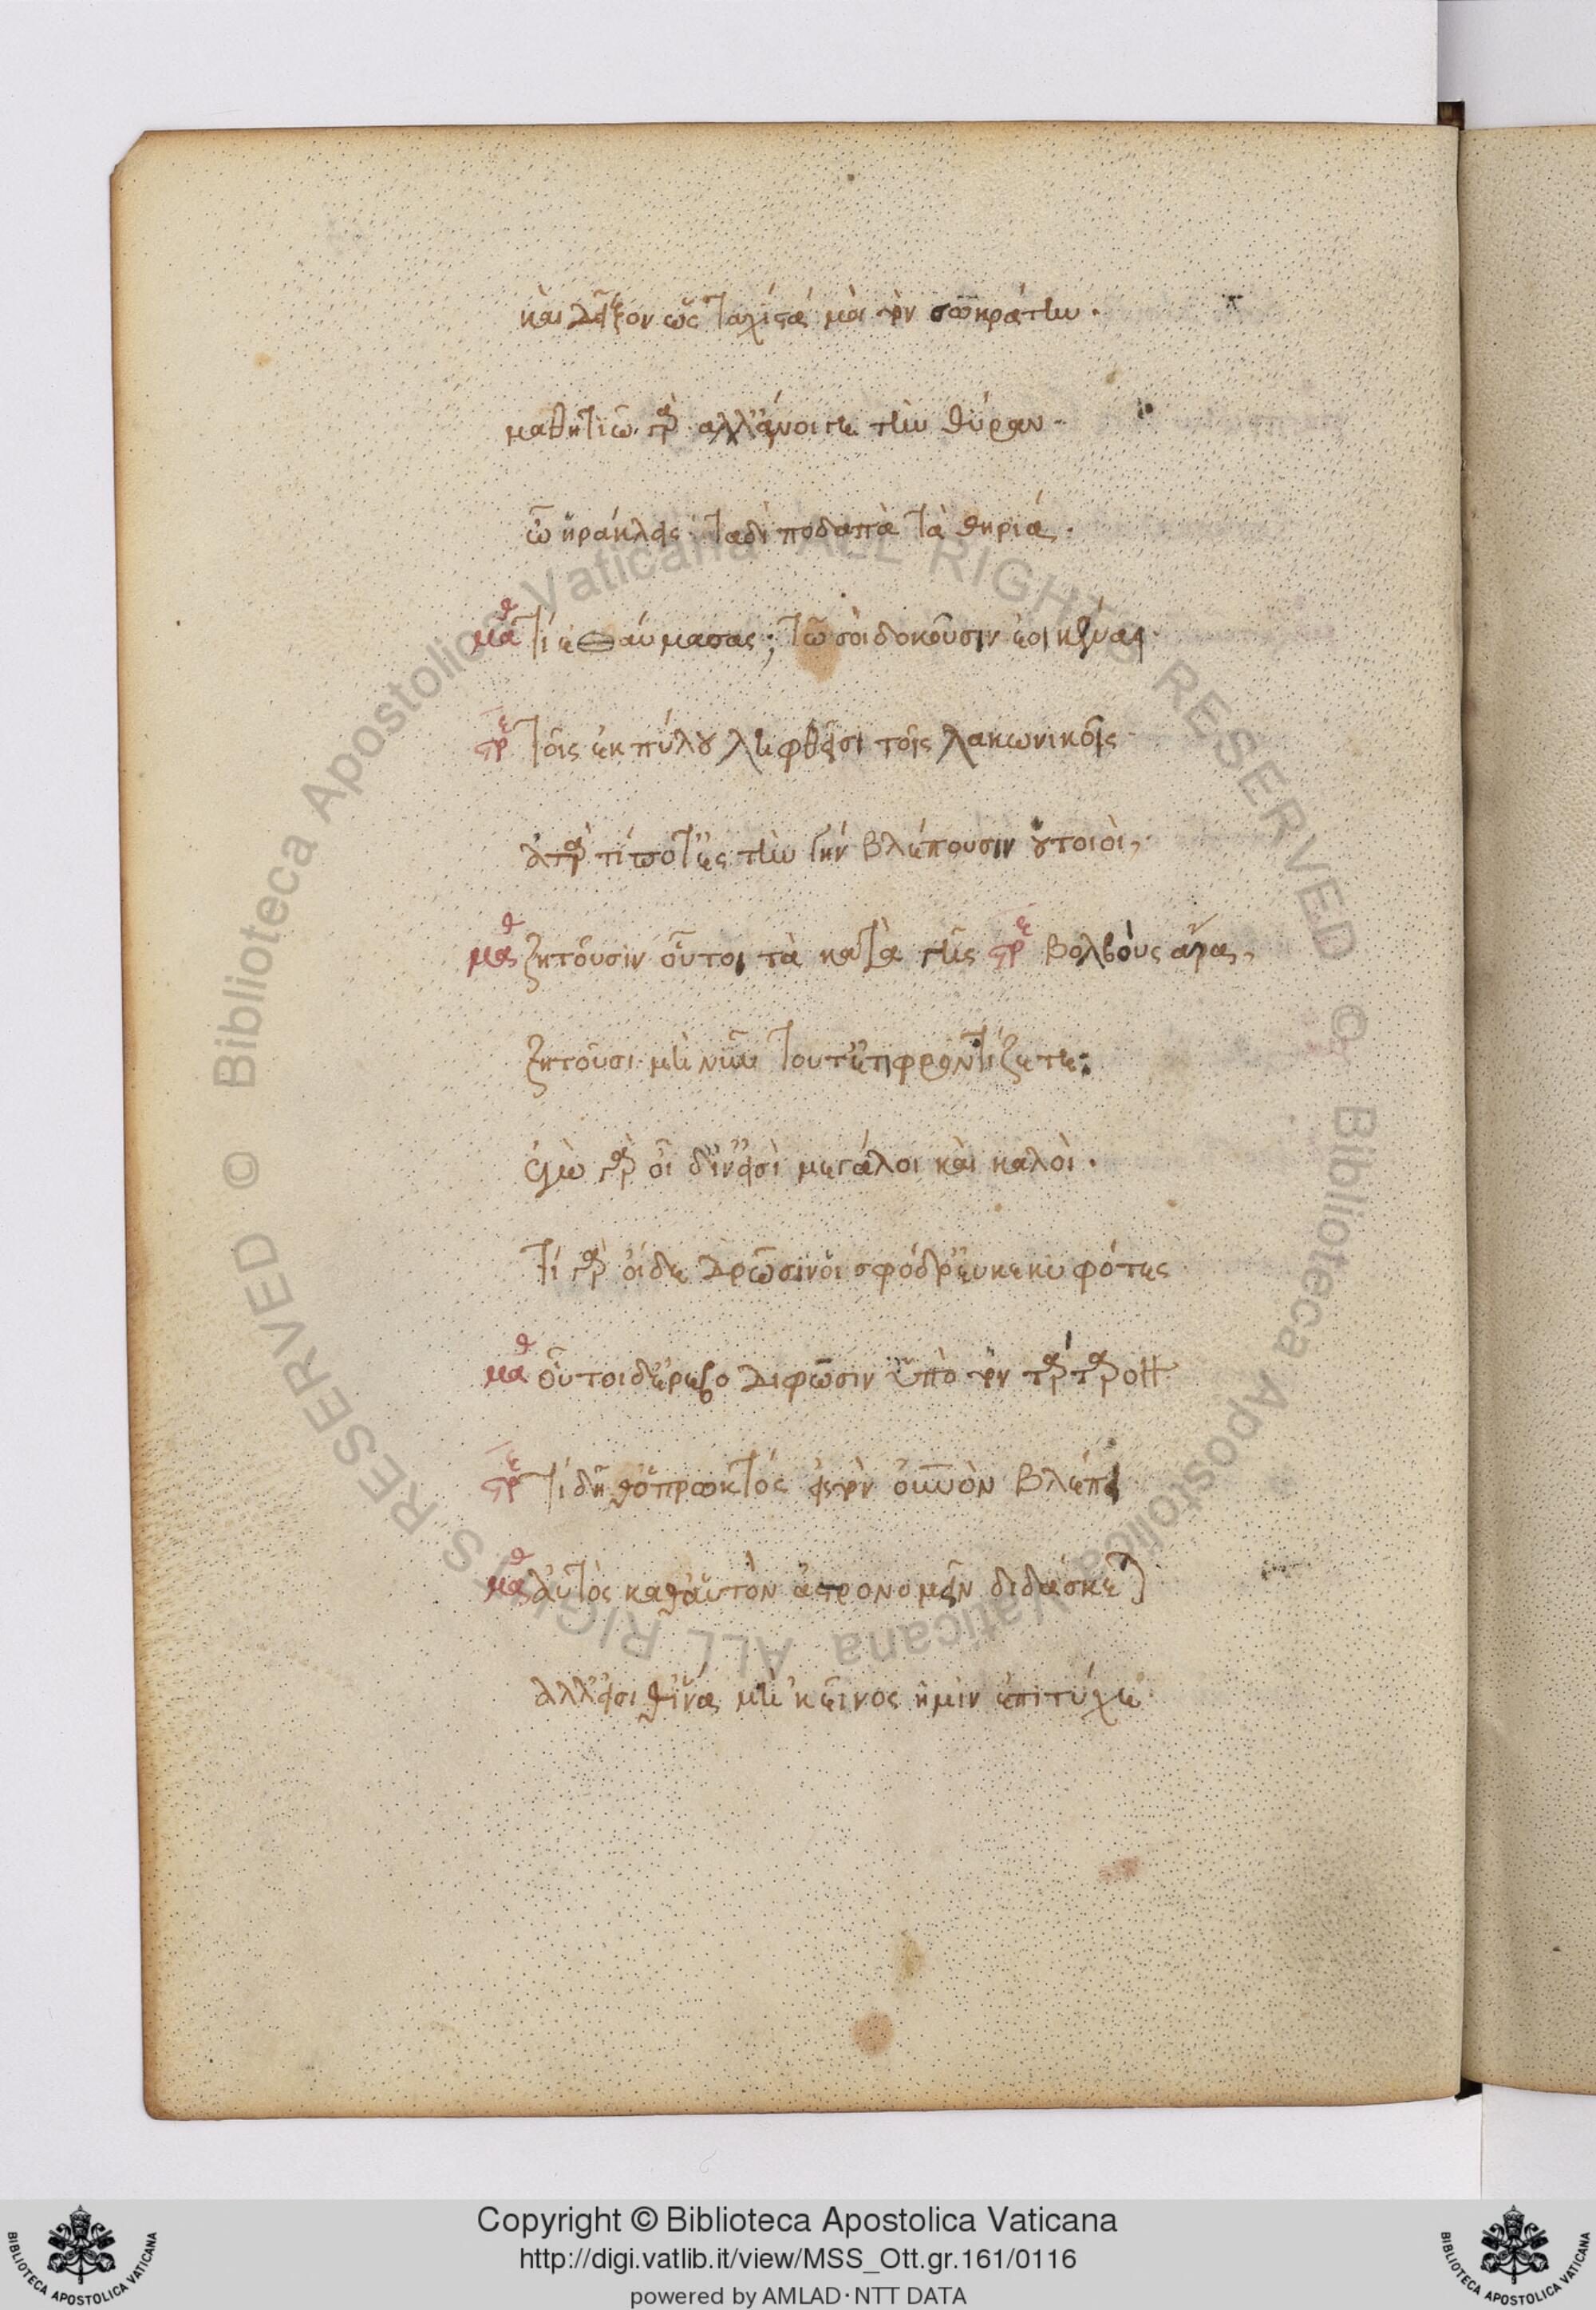 καὶ δεῖξον ὡς τάχιστά μοι τὸν σωκράτην.
μαθητιῶ γὰρ· ἀλλ' ἄνοιγε τὴν θύραν·
ὦ ἡράκλεις· ταδὶ ποδαπὰ τὰ θηρία.
μαθ τί ἐθαύμασας; τῶ σοὶ δοκοῦσιν εἰκέναι·
στρε τοῖς ἐκ πύλου ληφθεῖσι τοῖς λακωνικοῖς
ἀτὰρ τί ποτ' ἐς τὴν γῆν βλέπουσιν οὑτοιὶ,
μαθ ζητοῦσιν οὗτοι τὰ κατὰ γῆς στρε βολβοὺς ἄρα,
ζητοῦσι· μὴ νῦν τουτ' ἔτι φροντίζετε·
ἐγὼ γὰρ οἶδ' ἵν' εἰσὶ μεγάλοι καὶ καλοὶ.
τί γὰρ οἵδε δρῶσιν οἱ σφόδρ' ἐγκεκυφότες
μαθ οὗτοι δ' ἐρεβοδιφῶσιν ὑπὸ τὸν τάρταρον
στρε τί δῆθ' ὁ πρωκτός εἰς τὸν οὐρανὸν βλέπει
μαθ αὐτὸς καθ' αὑτὸν ἀστρονομεῖν διδάσκεται
ἀλλ' εἴσιθ' ἵνα μὴ 'κεῖνος ἡμῖν ἐπιτύχῃ·
Copyright © Biblioteca Apostolica Vaticana
http://digi.vatlib.it/view/MSS_Ott.gr.161/0116
powered by AMLAD·NTT DATA
BIBLIOTECA APOSTOLICA VATICANA
BIBLIOTECA APOSTOLICA VATICANA
© Biblioteca Apostolica Vaticana ALL RIGHTS RESERVED
© Biblioteca Apostolica Vaticana ALL RIGHTS RESERVED